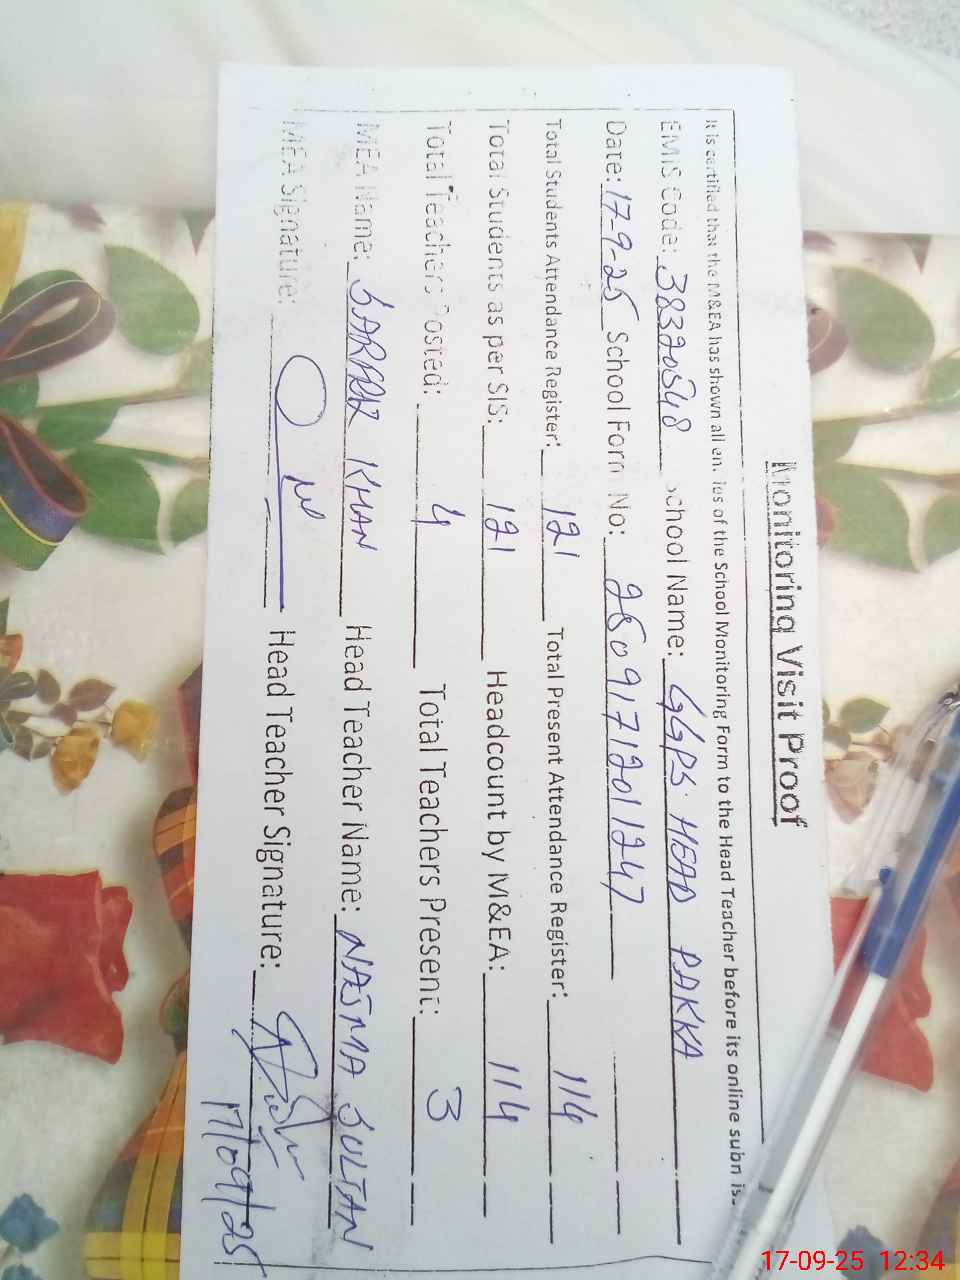 Monitoring Visit Proof
It is certified that the M&EA has shown all en. ies of the School Monitoring Form to the Head Teacher before its online subn is.
EMIS Code: 38320548 School Name: GGPS. HEAD PAKKA
Date: 17-9-25 School Form No: 2509171201247
Total Students Attendance Register: 121 Total Present Attendance Register: 114
Total Students as per SIS: 121 Headcount by M&EA: 114
Total Teachers Posted: 4 Total Teachers Present: 3
MEA Name: KHAN Head Teacher Name: NAJMA SULTAN
MEA Signature: Head Teacher Signature:
17/09/25
17-09-25 12:34